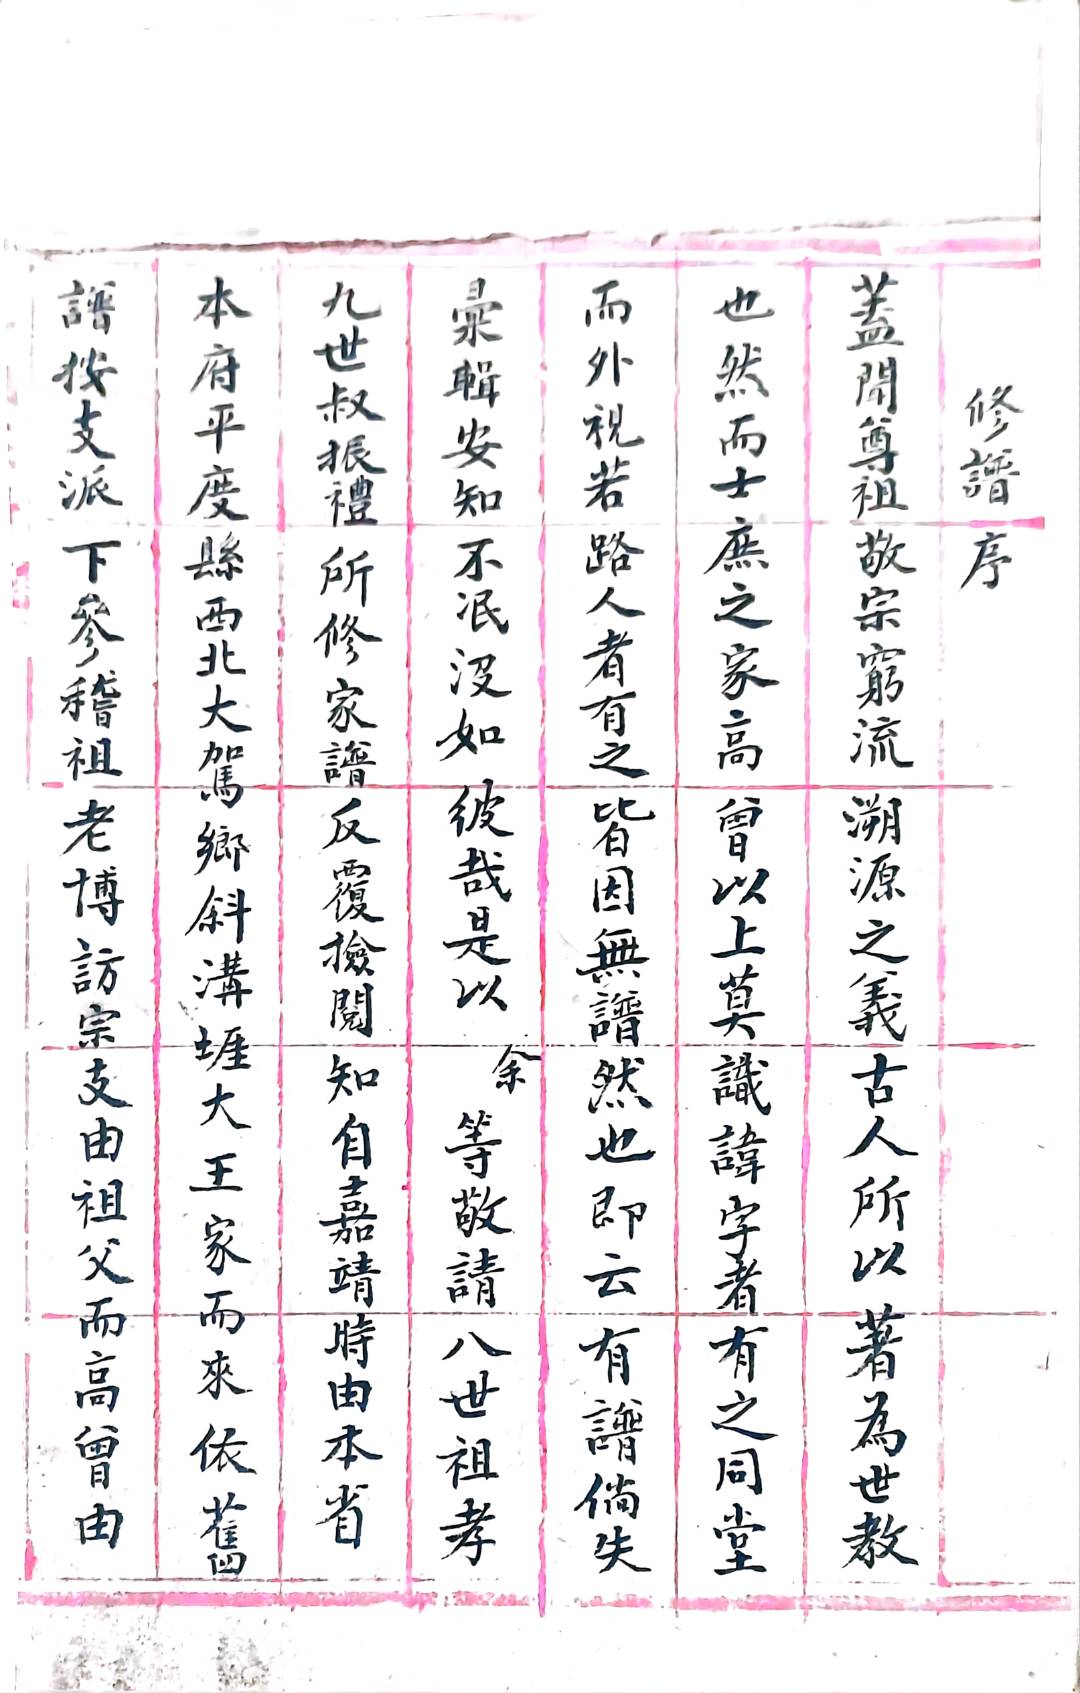 修譜序
蓋聞尊祖敬宗窮流溯源之義古人所以著為世教
也然而士庶之家高曾以上莫識諱字者有之同堂
而外視若路人者有之皆因無譜然也即云有譜倘失
彙輯安知不泯沒如彼哉是以余等敬請八世祖孝
九世叔振禮所修家譜反覆撿閱知自嘉靖時由本省
本府平度縣西北大駕鄉斜溝堐大王家而來依舊
譜按支派下參稽祖老博訪宗支由祖父而高曾由